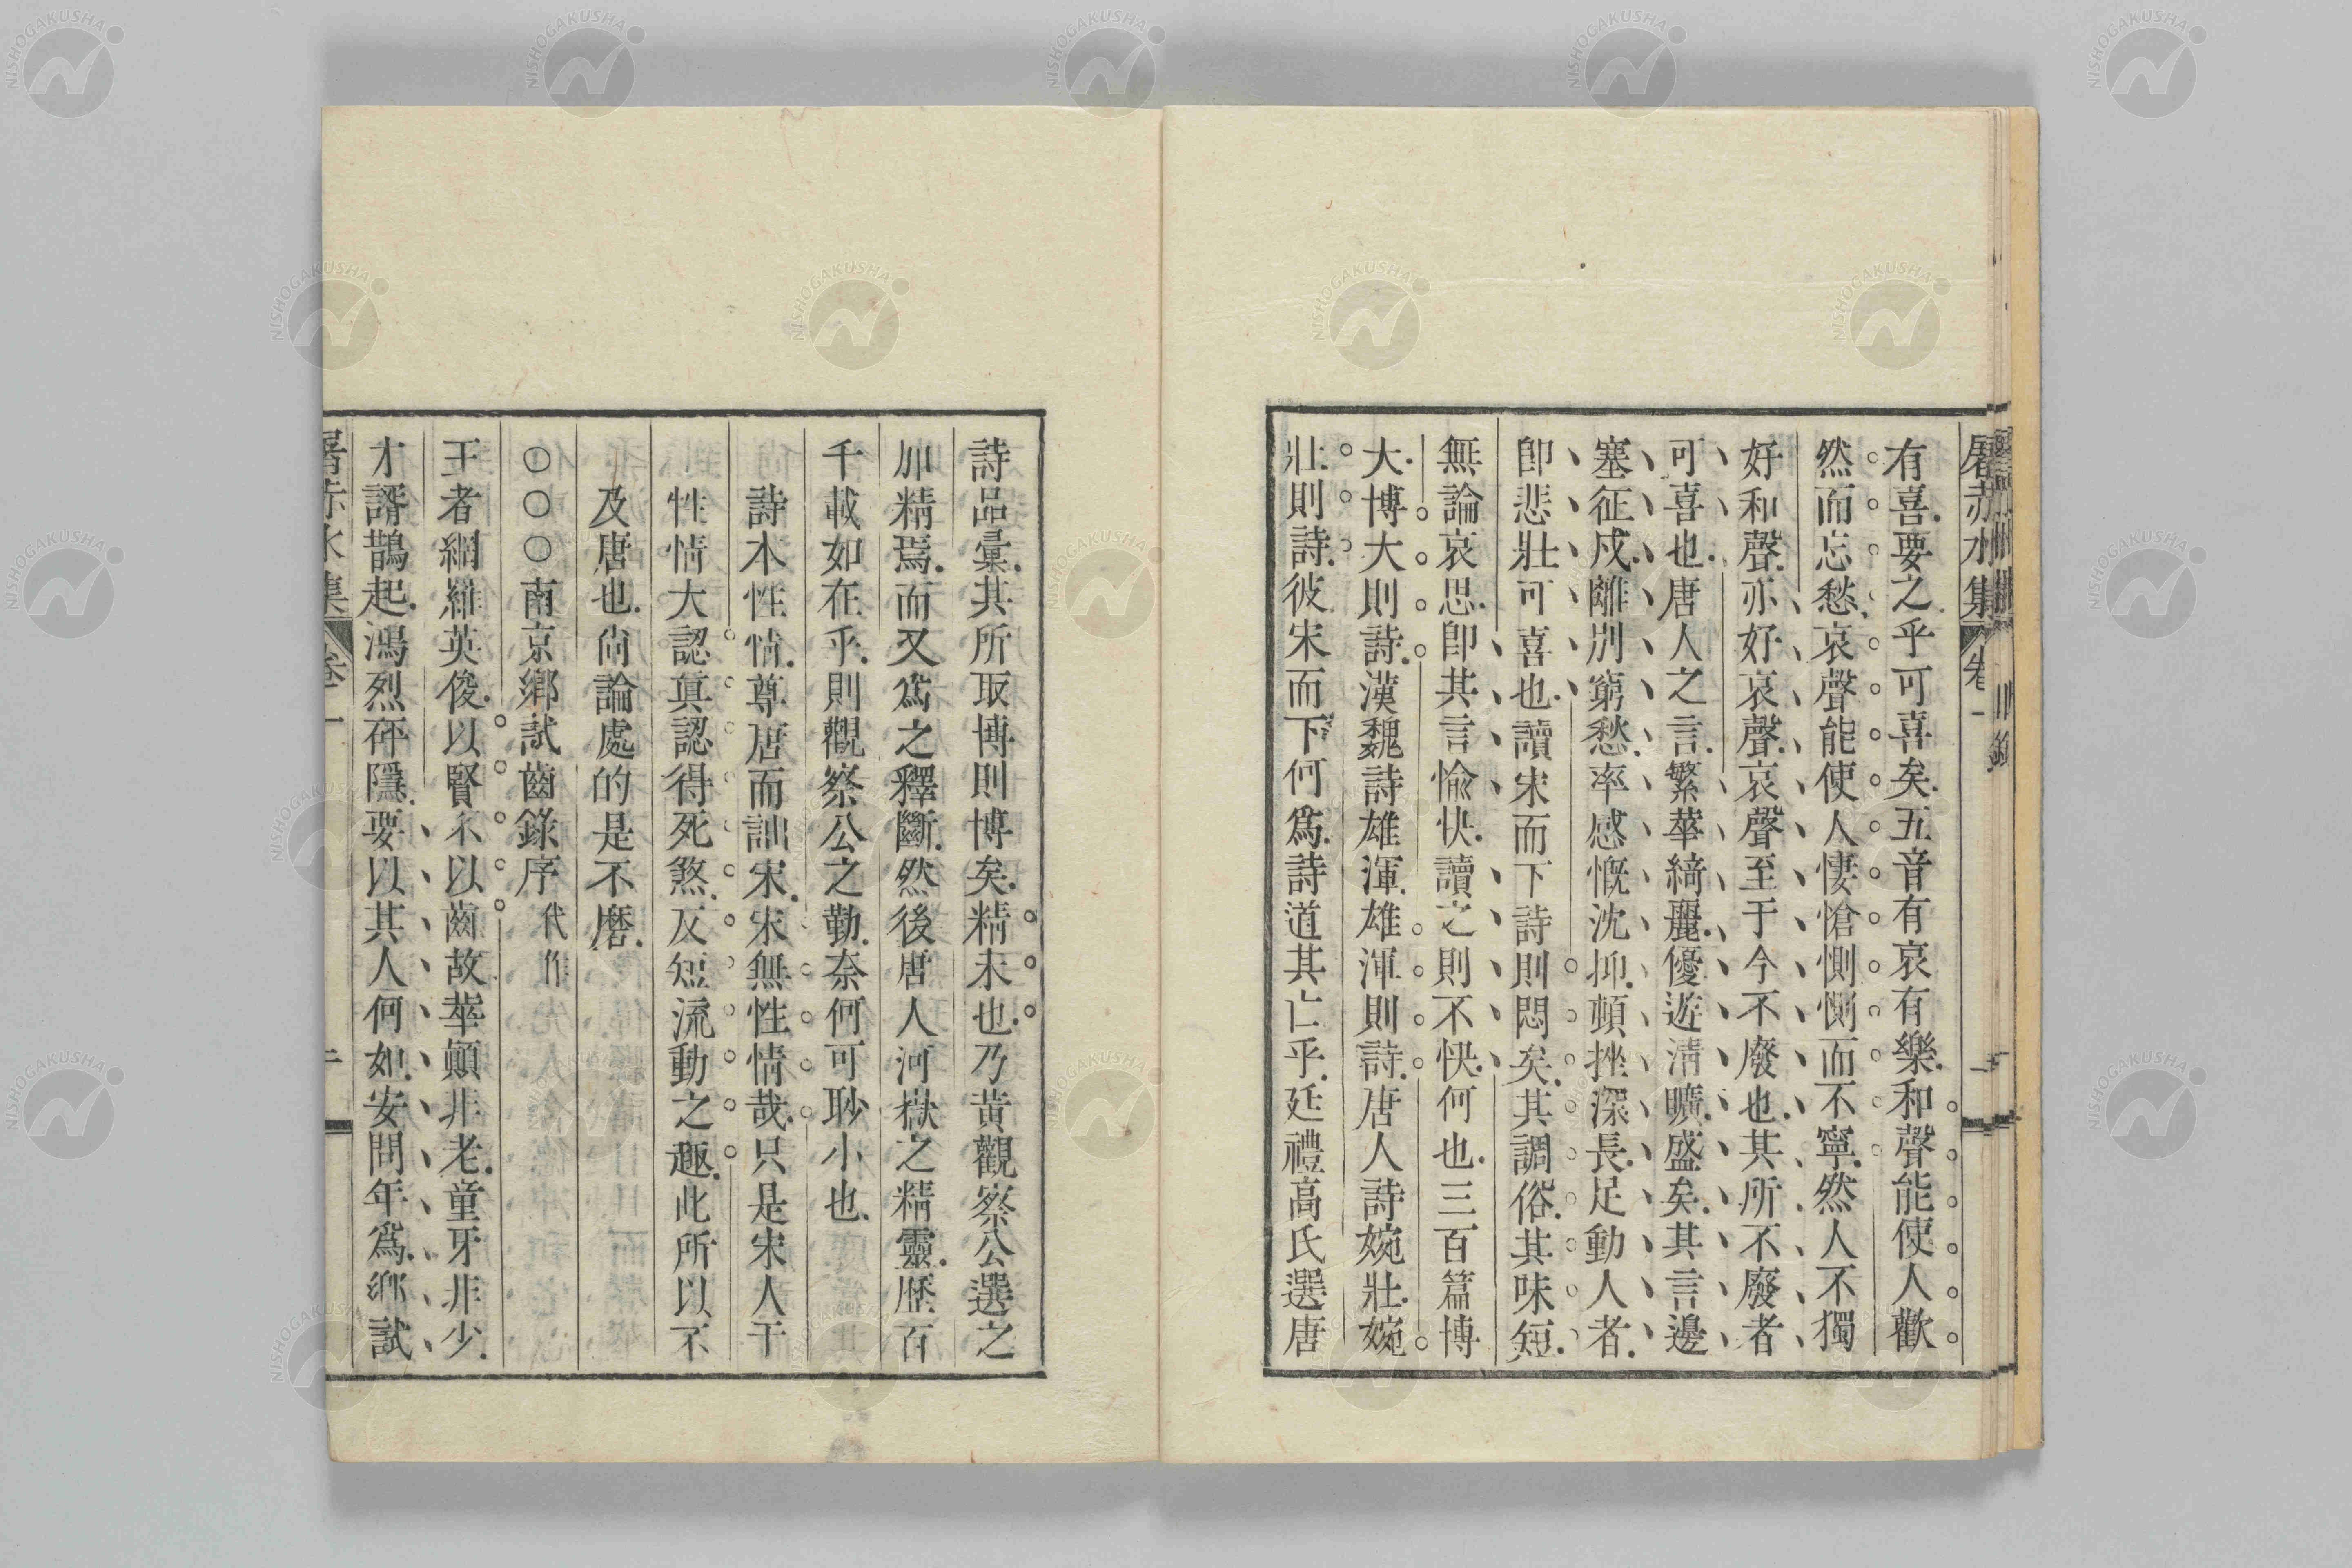 屠赤水集 卷一
有喜要之乎可喜矣五音有哀有樂和聲能使人歡
然而忘愁哀聲能使人悽愴惻惻而不寧然人不獨
好和聲亦好哀聲哀聲至于今不廢也其所不廢者
可喜也唐人之言繁華綺麗優遊淸曠盛矣其言邊
塞征戍離别窮愁率感慨沈抑頓挫深長足動人者
卽悲壯可喜也讀宋而下詩則悶矣其調俗其味短
無論哀思卽其言愉快讀之則不快何也三百篇博
大博大則詩漢魏詩雄渾雄渾則詩唐人詩婉壯婉
壯則詩彼宋而下何爲詩道其亡乎廷禮高氏選唐
詩品彙其所取博則博矣精未也乃黄觀察公選之
加精焉而又爲之釋斷然後唐人河嶽之精靈歷百
千載如在乎則觀察公之勤奈何可眇小也
詩本性情尊唐而訕宋宋無性情哉只是宋人于
性情大認眞認得死煞反短流動之趣此所以不
及唐也尙論處的是不磨
○○○南京鄉試齒錄序 代作
王者網羅英俊以賢不以齒故華顛非老童牙非少
才諝鵲起鴻烈砰隱要以其人何如安問年爲鄉試
屠赤水集 卷一
NISHOGAKUSHA